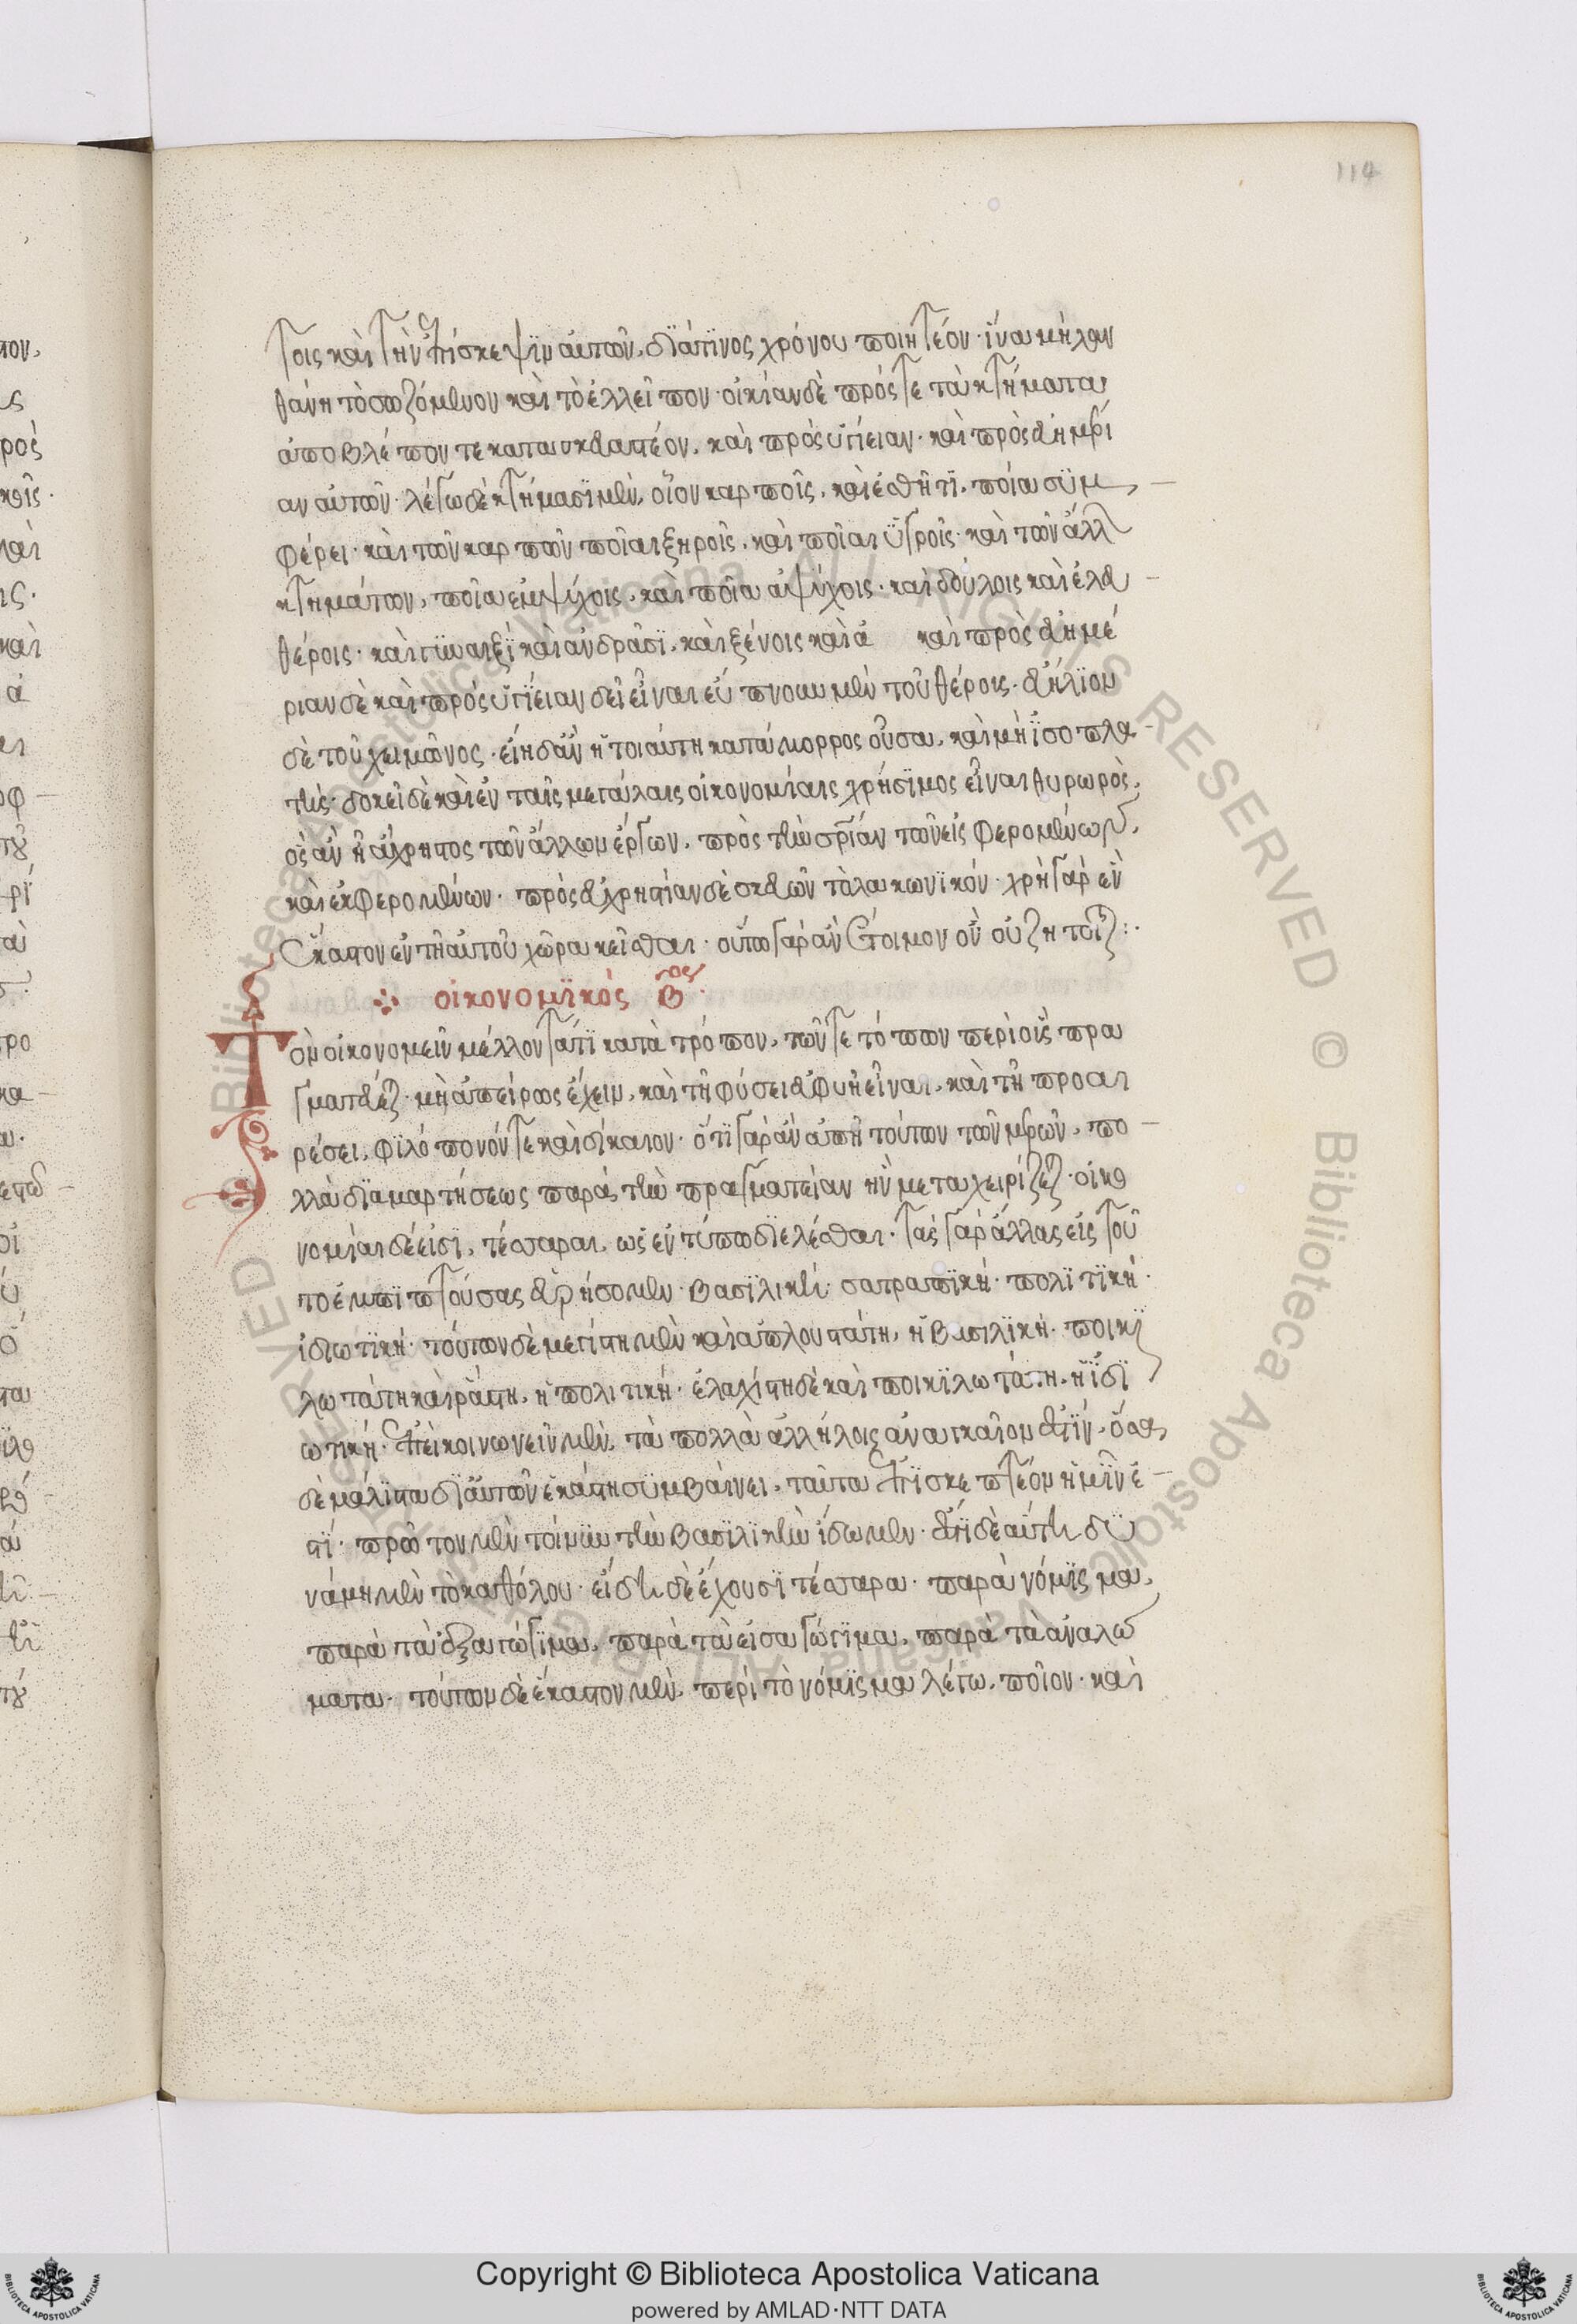 114
τοις καὶ τὴν ἐπίσκεψιν αὐτῶν, διά τινος χρόνου ποιητέον· ἵνα μὴ λαν
θάνη τὸ σωζόμενον καὶ τὸ ἐλλεῖπον· οἰκίαν δὲ πρός τε τὰ κτήματα
ἀποβλέποντε κατασκευαστέον, καὶ πρὸς ὑγίειαν· καὶ πρὸς εὐημερί
αν αὐτῶν· λέγω δὲ κτήμασι μὲν, οἷον καρποῖς, καὶ ἐσθῆτι, ποία συμ
φέρει· καὶ τῶν καρπῶν ποῖαι ξηροῖς, καὶ ποῖαι ὑγροῖς· καὶ τῶν ἄλλ
κτημάτων, ποῖα ἐμψύχοις, καὶ ποῖα ἀψύχοις· καὶ δούλοις καὶ ἐλευ
θέροις· καὶ γυναιξὶ καὶ ἀνδράσι, καὶ ξένοις καὶ ἀ καὶ πρὸς εὐημέ
ριαν δὲ καὶ πρὸς ὑγίειαν δεῖ εἶναι εὔπνουν μὲν τοῦ θέρους· εὐήλιον
δὲ τοῦ χειμῶνος· εἴη δ' ἂν ἡ τοιαύτη κατάμορρος οὖσα, καὶ μὴ ἰσοπλα
τής· δοκεῖ δὲ καὶ ἐν ταῖς μεγάλαις οἰκονομίαις χρήσιμος εἶναι θυρωρὸς,
ὃς ἂν ἦ ἄχρηστος τῶν ἄλλων ἔργων, πρὸς τὴν σρίαν τῶν εἰσφερομένων,
καὶ ἐκφερομένων· πρὸς εὐχρηστίαν δὲ σκευῶν τὸ λακωνικόν· χρὴ γὰρ ἓν
ἕκαστον ἐν τῇ αὐτοῦ χώρα κεῖσθαι· οὕτω γὰρ ἂν ἕτοιμον ὂν οὐ ζητοῖτο:·
οἰκονομικὸς βος·
Τὸν οἰκονομεῖν μέλλοντά τι κατὰ τρόπον, τῶν τε τόπων περὶ οὓς πρα
γματεύεται· μὴ ἀπείρως ἔχειν, καὶ τῇ φύσει εὐφυῆ εἶναι, καὶ τῇ προαι
ρέσει, φιλόπονόν τε καὶ δίκαιον· ὅτι γὰρ ἂν ἀπῆ τούτων τῶν μερῶν, πο
λλὰ διαμαρτήσεως παρὰ, τὴν πραγματείαν ἣν μεταχειρίζεται· οἰκο
νομίαι δέ εἰσι, τέσσαραι, ὡς ἐν τύπω διελέσθαι· τὰς γὰρ ἄλλας εἰς τοῦ
το ἐμπιπτούσας εὑρήσομεν· βασιλική· σατραπική· πολιτική·
ἰδιωτική· τούτων δὲ μεγίστη μὲν καὶ ἁπλουστάτη, ἡ βασιλική· ποικι
λωτάτη καὶ ῥάστη, ἡ πολιτική· ἐλαχίστη δὲ καὶ ποικιλωτάτη, ἡ ἰδι
ωτική· ἐπικοινωνεῖν μὲν, τὰ πολλὰ ἀλλήλοις ἀναγκαῖον ἐστίν, ὅσα
δὲ μάλιστα δι' αὐτῶν ἑκάστη συμβαίνει, ταῦτα ἐπισκεπτέον ἡμῖν ἐ
στί· πρῶτον μὲν τοίνυν τὴν βασιλικὴν ἴδωμεν· ἔστι δὲ αὕτη δυ
νάμη μὲν τὸ καθόλου· εἴδη δὲ ἔχουσι τέσσαρα· παρὰ νόμισμα,
παρὰ τὰ ἐξαγώγιμα, παρὰ τὰ εἰσαγώγιμα, παρὰ τὰ ἀναλώ
ματα· τούτων δὲ ἕκαστον μὲν, περὶ τὸ νόμισμα λέγω, ποῖον· καὶ
Copyright © Biblioteca Apostolica Vaticana
powered by AMLAD·NTT DATA